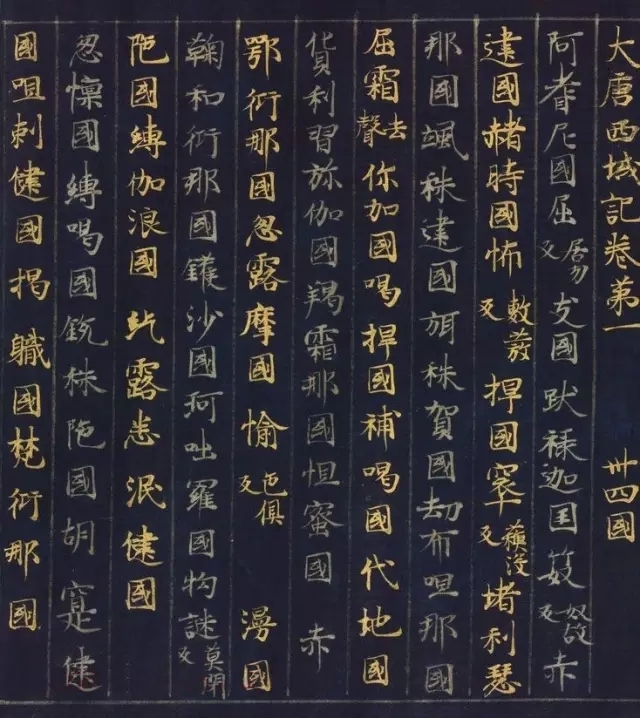 大唐西域記卷第一 卅四國
阿耆尼國屈居勿反支國跋祿迦国笯奴故反赤
建國赭時國怖敷發反捍國窣蘓沒反堵利瑟
那國颯秣建國弭秣賀國劫布呾那國
屈霜去聲你加國喝捍國補喝國代地國
貨利習弥伽國羯霜那國怛蜜國 赤
鄂衍那國忽露摩國愉色俱反 漫國
鞠和衍那國鑊沙國珂咄羅國拘謎莫閇反
陁國縛伽浪國 訖露悉泯健國
忽懍國縛喝國銳秣陁國胡寔健
國呾剌健國揭職國梵衍那國